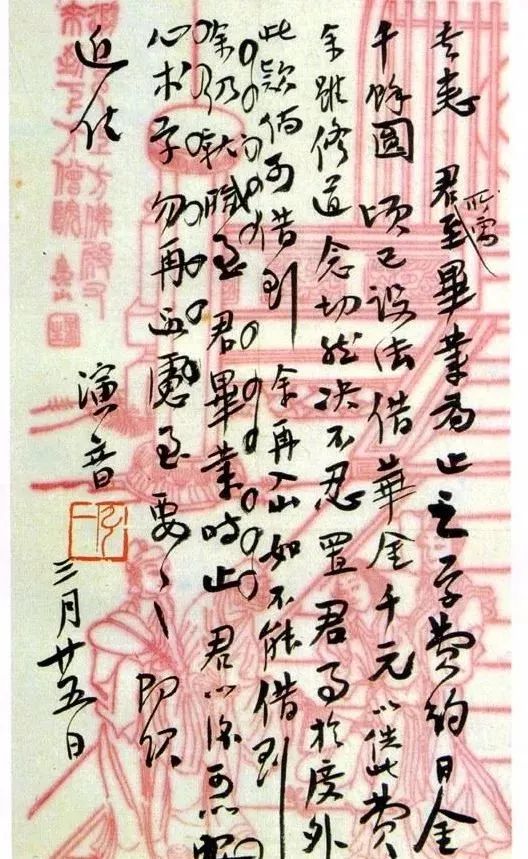 書悉 君所需至畢業為止之學費約日金
千餘圓 頃已設法借華金千元以供此費
余雖修道念切然決不忍置君事於度外
此款倘可借到 余再入山如不能借到
余仍就職至君畢業時止 君以後可以安
心求學勿再過慮至要々々 即頌
近佳
演音
三月廿五日